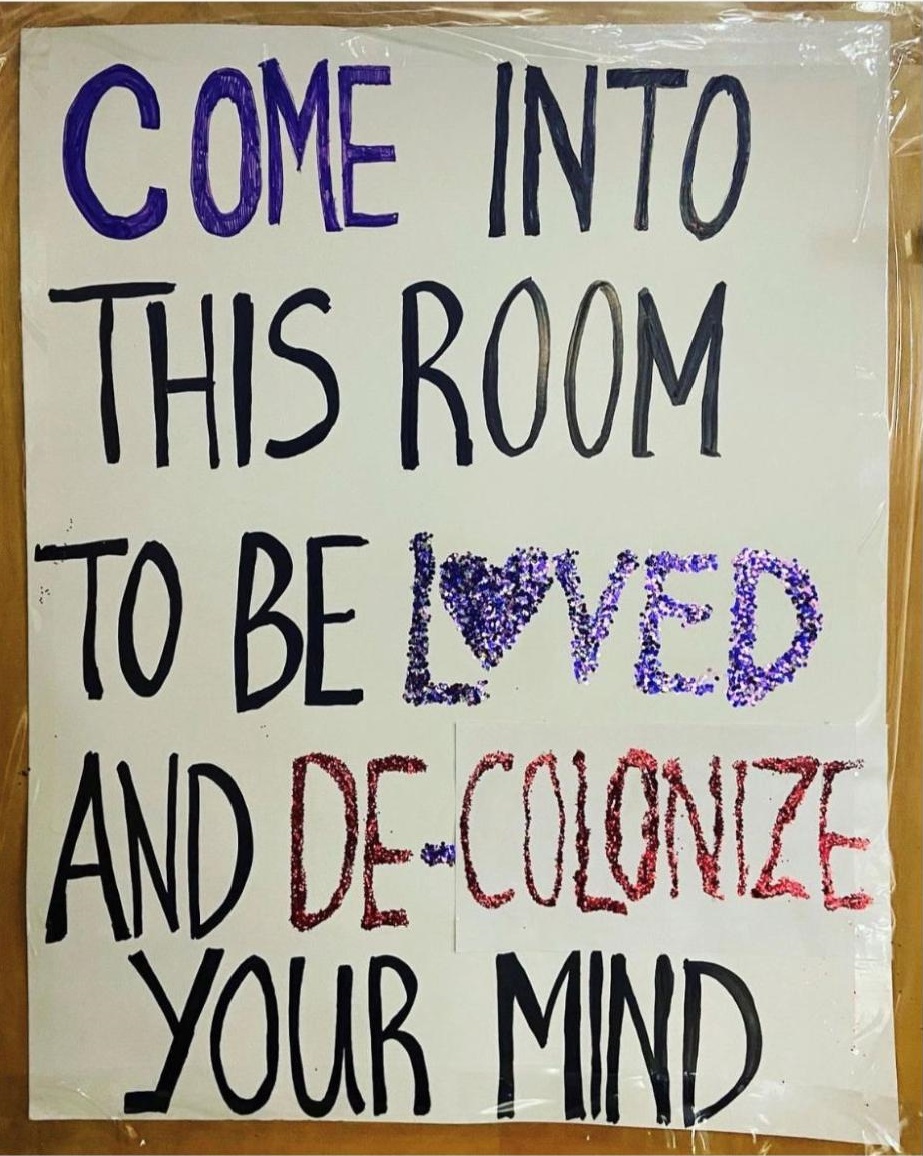 COME INTO
THIS ROOM
TO BE LOVED
AND DE-COLONIZE
YOUR MIND